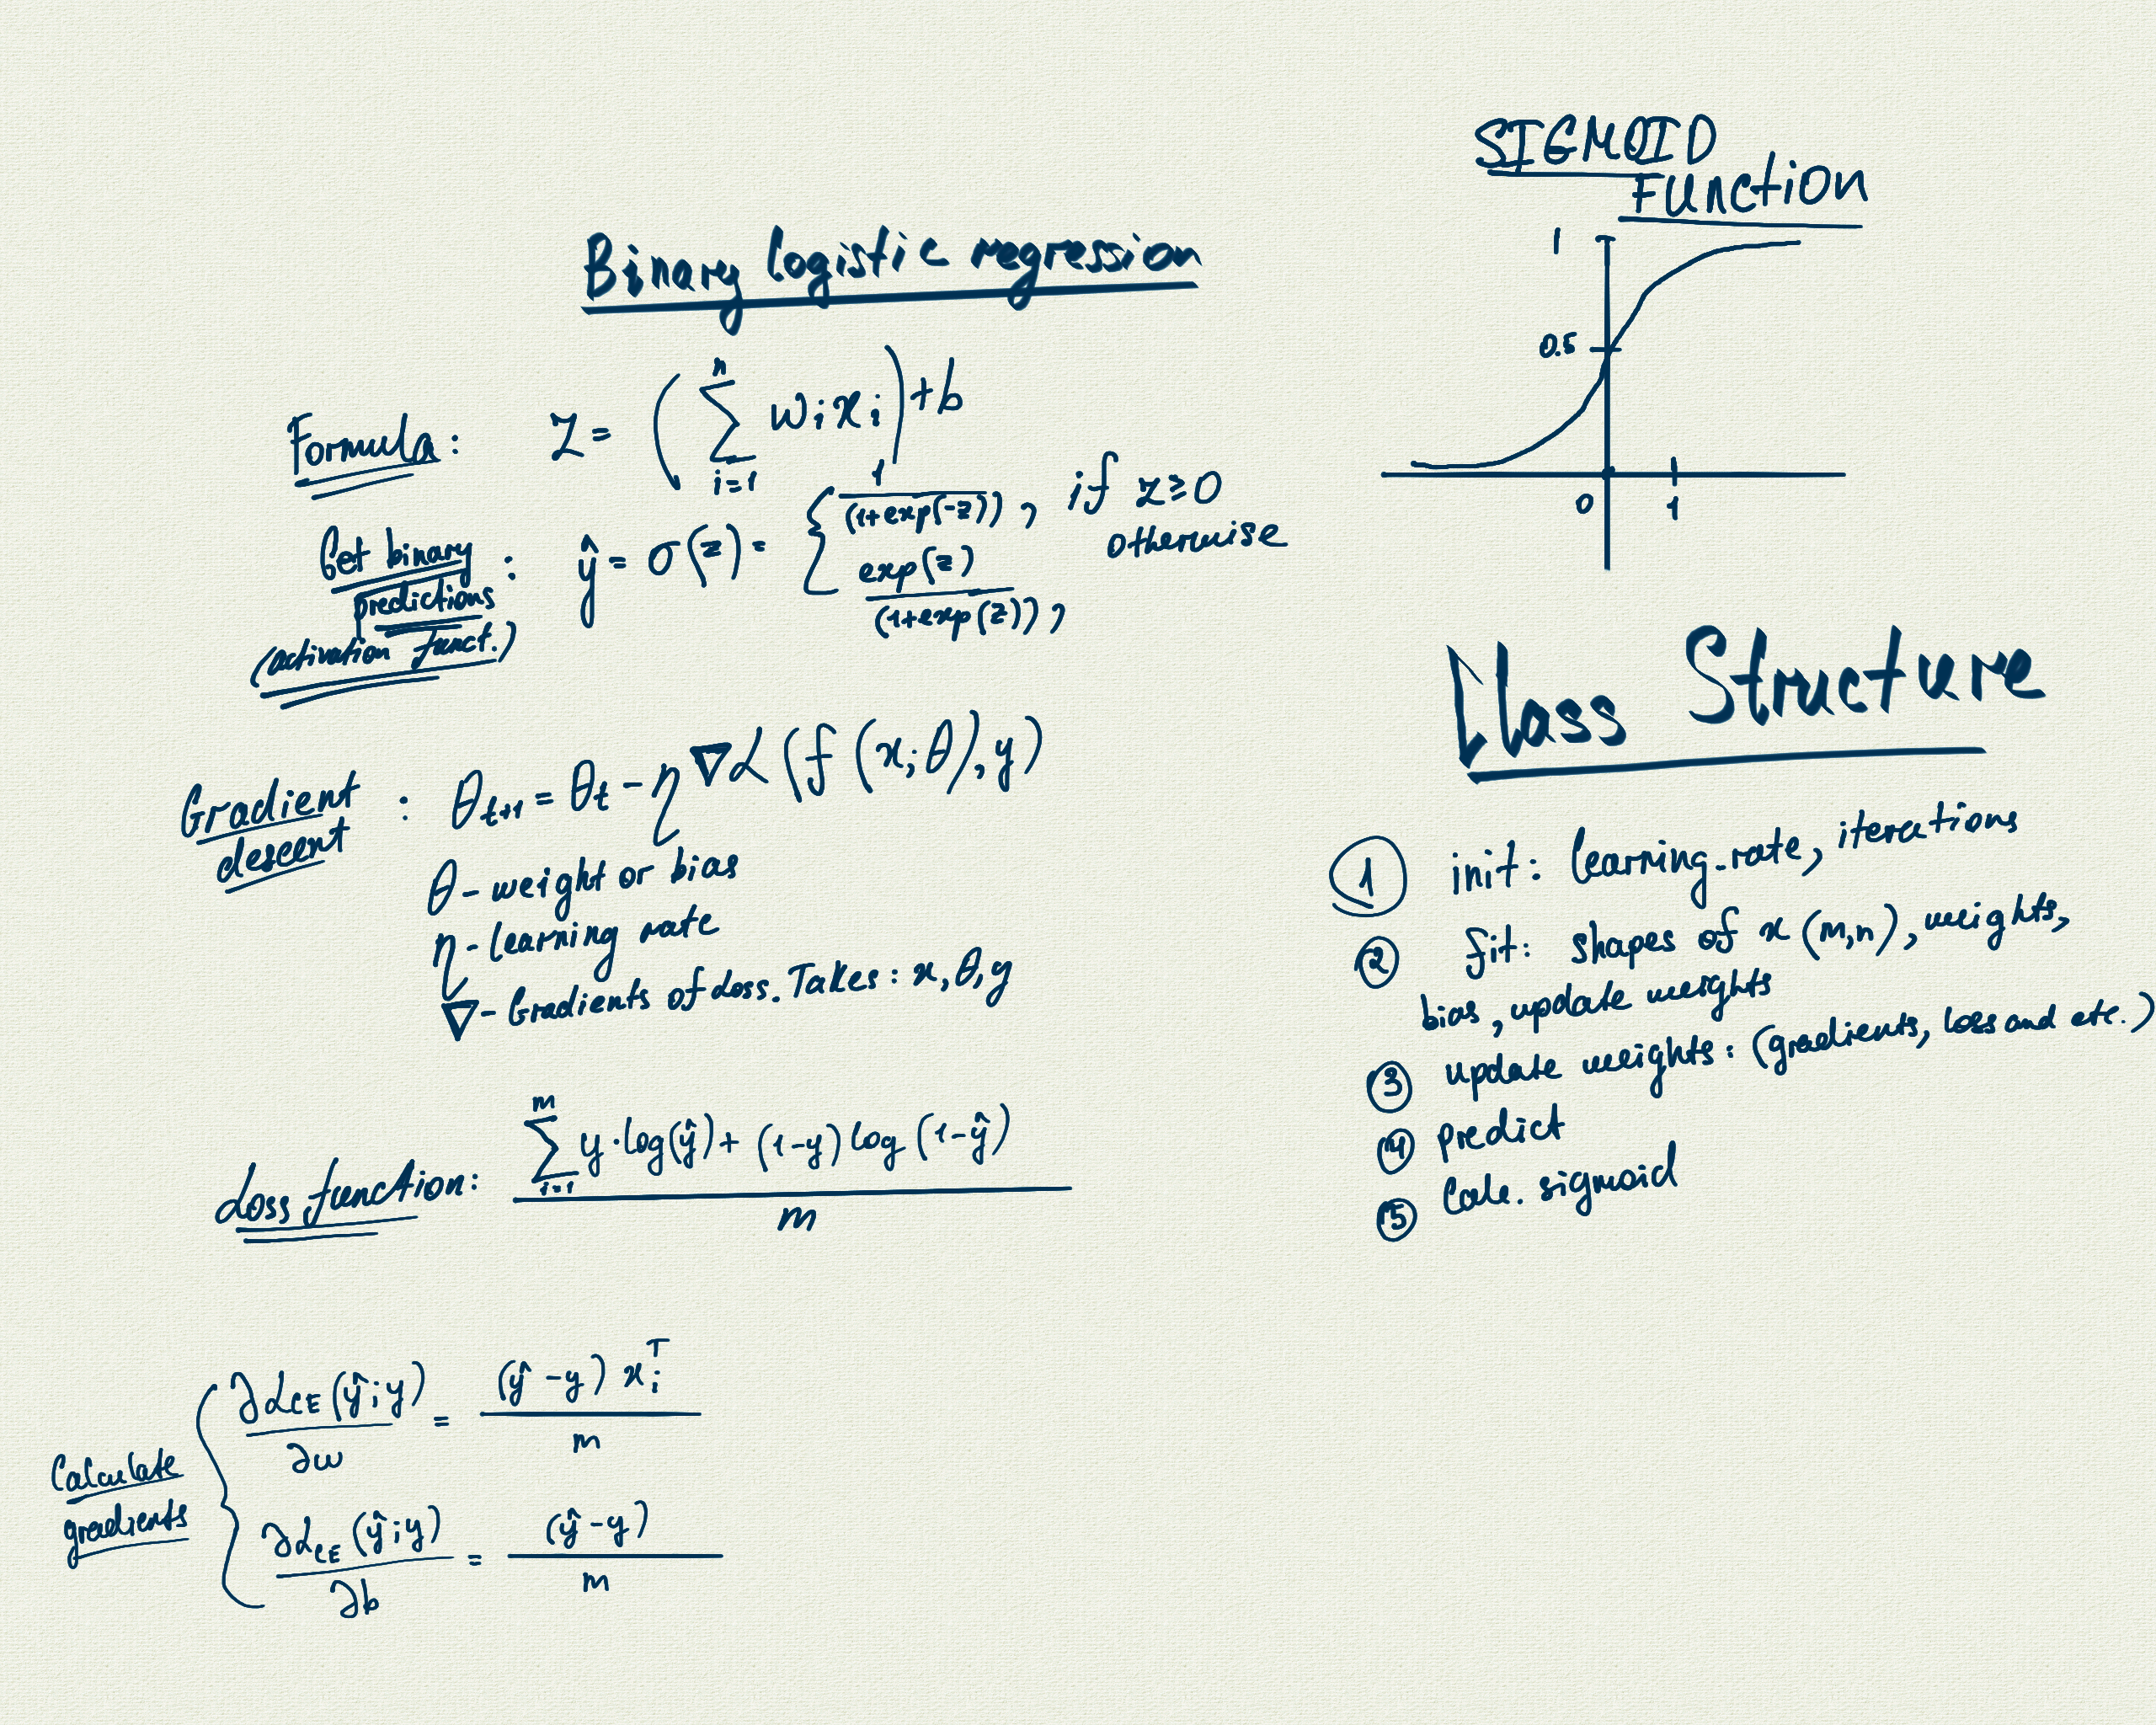 Binary logistic regression
Formula: Z = (∑_{i=1}^{n} w_i x_i) + b
Get binary predictions (activation funct.) : ŷ = σ(z) = { 1/(1+exp(-z)), if z ≥ 0
exp(z)/(1+exp(z)), otherwise
Gradient descent : θ_{t+1} = θ_t - η ∇L(f(x;θ), y)
θ - weight or bias
η - learning rate
∇ - Gradients of Loss. Takes: x, θ, y
Loss function: ∑_{i=1}^{m} y·log(ŷ) + (1-y) log (1-ŷ) / m
Calculate gradients { ∂L_CE(ŷ;y)/∂w = (ŷ-y) x_i^T / m
∂L_CE(ŷ;y)/∂b = (ŷ-y) / m
SIGMOID
FUNCTION
1
0.5
0 1
Class Structure
1 init: learning_rate, iterations
2 fit: shapes of x (m,n), weights,
bias, update weights
3 update weights: (gradients, loss and etc.)
4 predict
5 Calc. sigmoid